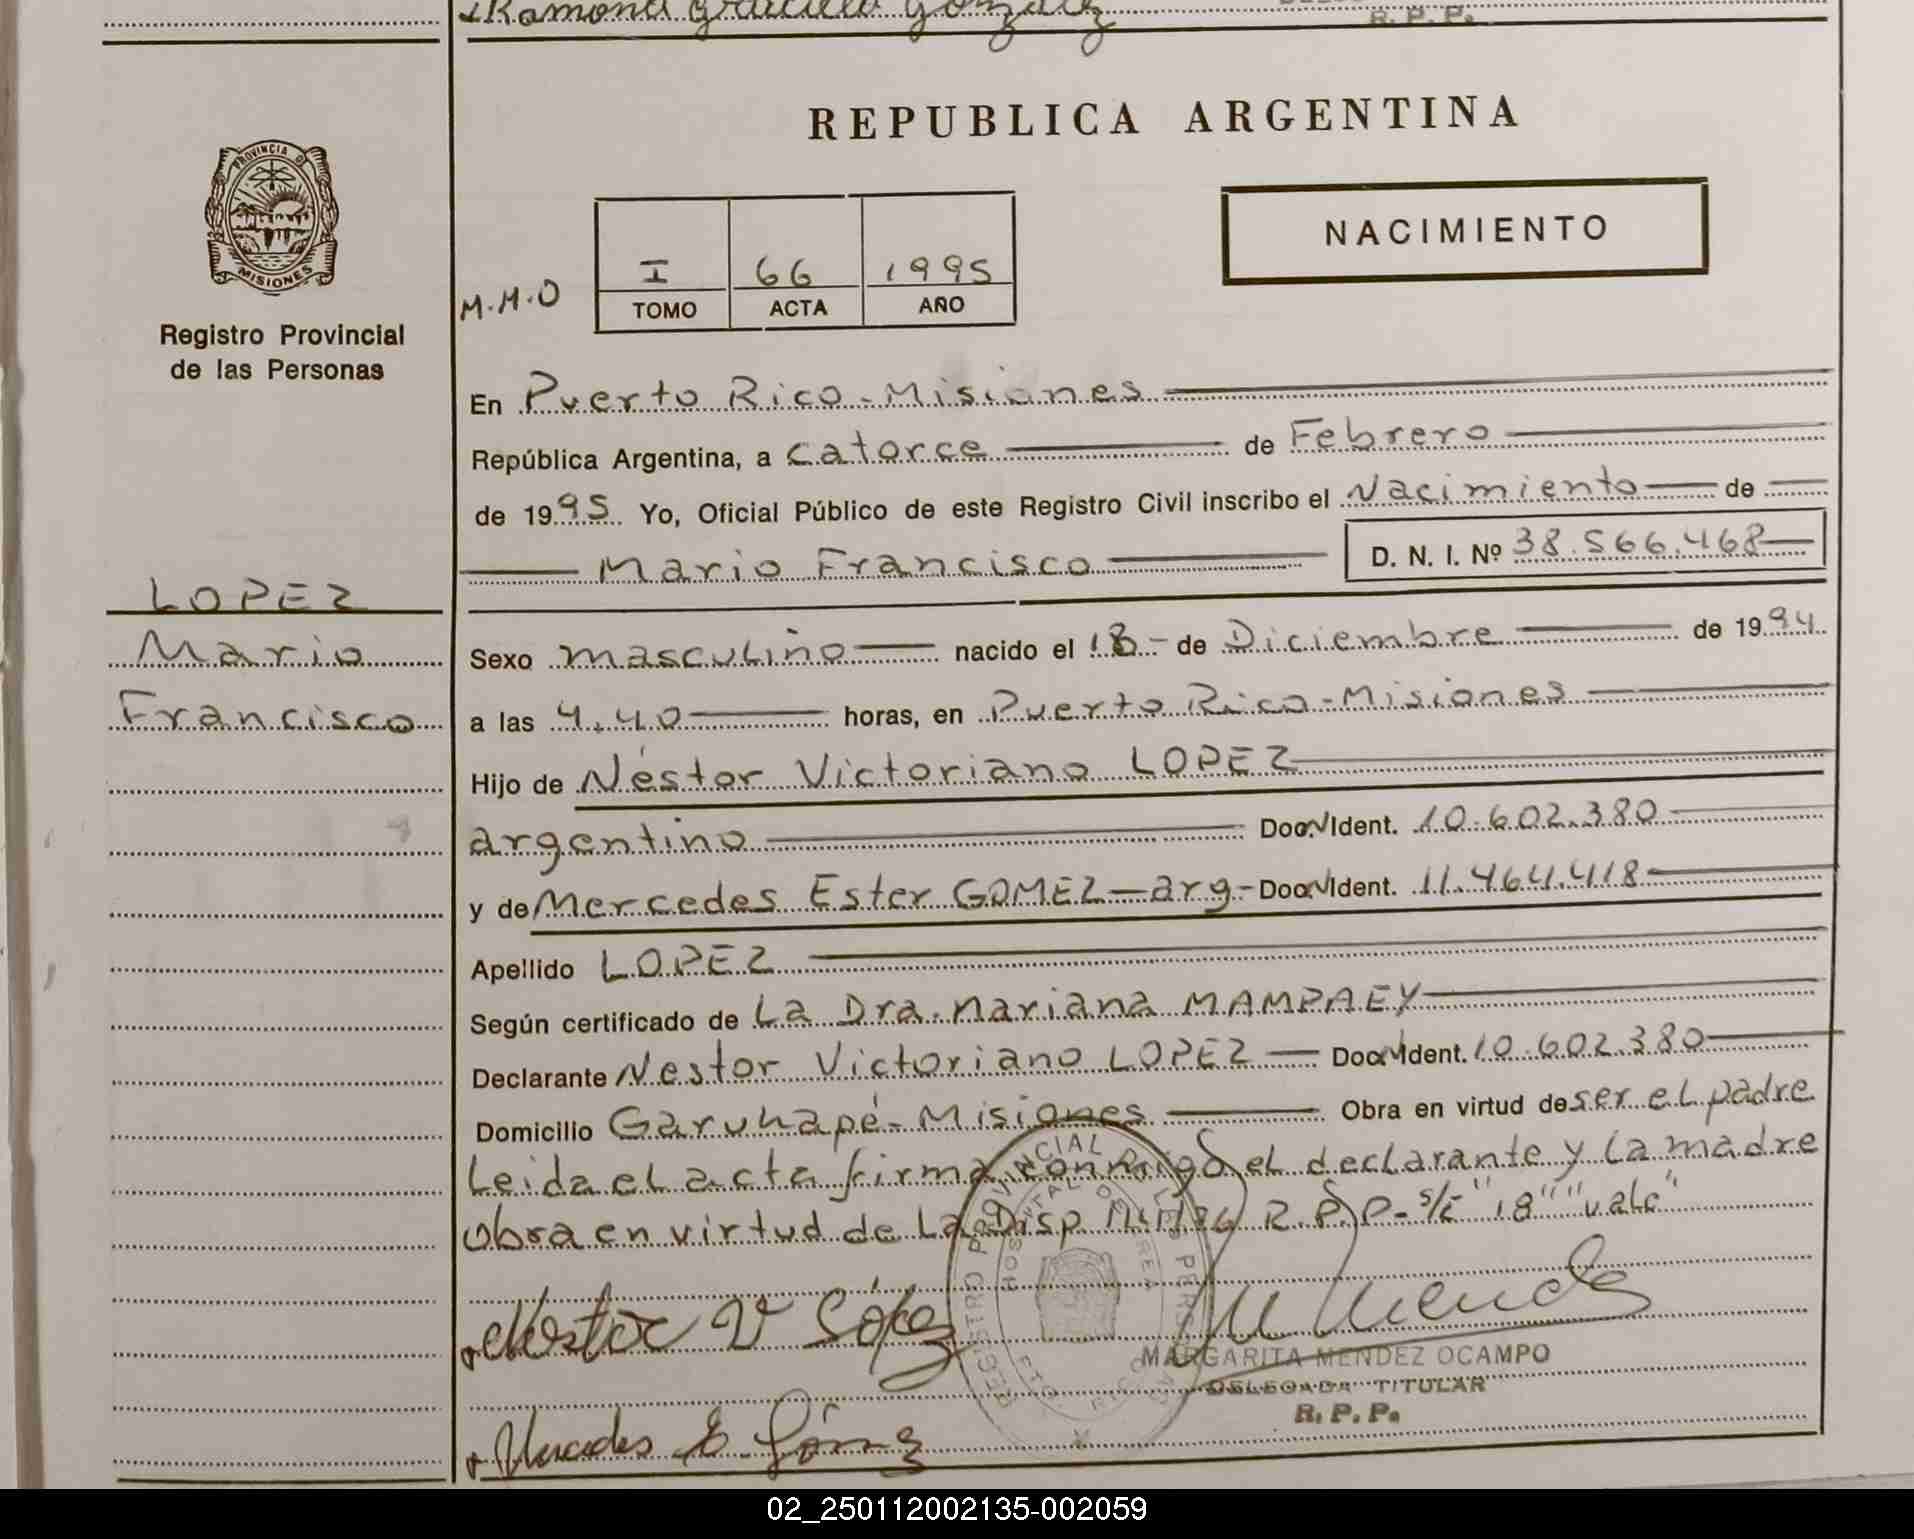 Ramona Graciela González
R. P. P.
REPUBLICA ARGENTINA
PROVINCIA D
MISIONES
Registro Provincial
de las Personas
NACIMIENTO
M.M.O
I 66 1995
TOMO ACTA AÑO
En Puerto Rico - Misiones
República Argentina, a catorce de Febrero
de 1995 Yo, Oficial Público de este Registro Civil inscribo el Nacimiento de
Mario Francisco D. N. I. Nº 38.566.468
LOPEZ
Mario
Francisco
Sexo masculino nacido el 18 - de Diciembre de 1994
a las 4.40 horas, en Puerto Rico - Misiones
Hijo de Néstor Victoriano LOPEZ
argentino Doc. Ident. 10.602.380
y de Mercedes Ester GOMEZ - arg - Doc. Ident. 11.464.418
Apellido LOPEZ
Según certificado de La Dra. Mariana MAMPAEY
Declarante Nestor Victoriano LOPEZ Doc. Ident. 10.602.380
Domicilio Garuhapé - Misiones Obra en virtud de ser el padre
Leida el acta firma conmigo el declarante y la madre
obra en virtud de La Disp R.P.P - s/e "18" "vale"
Nestor Vr López
MARGARITA MENDEZ OCAMPO
DELEGADA TITULAR
R. P. P.
Mercedes E. Gómez
REGISTRO PROVINCIAL DE LAS PERSONAS
HOSPITAL DE AREA
PTO. RICO
02_250112002135-002059